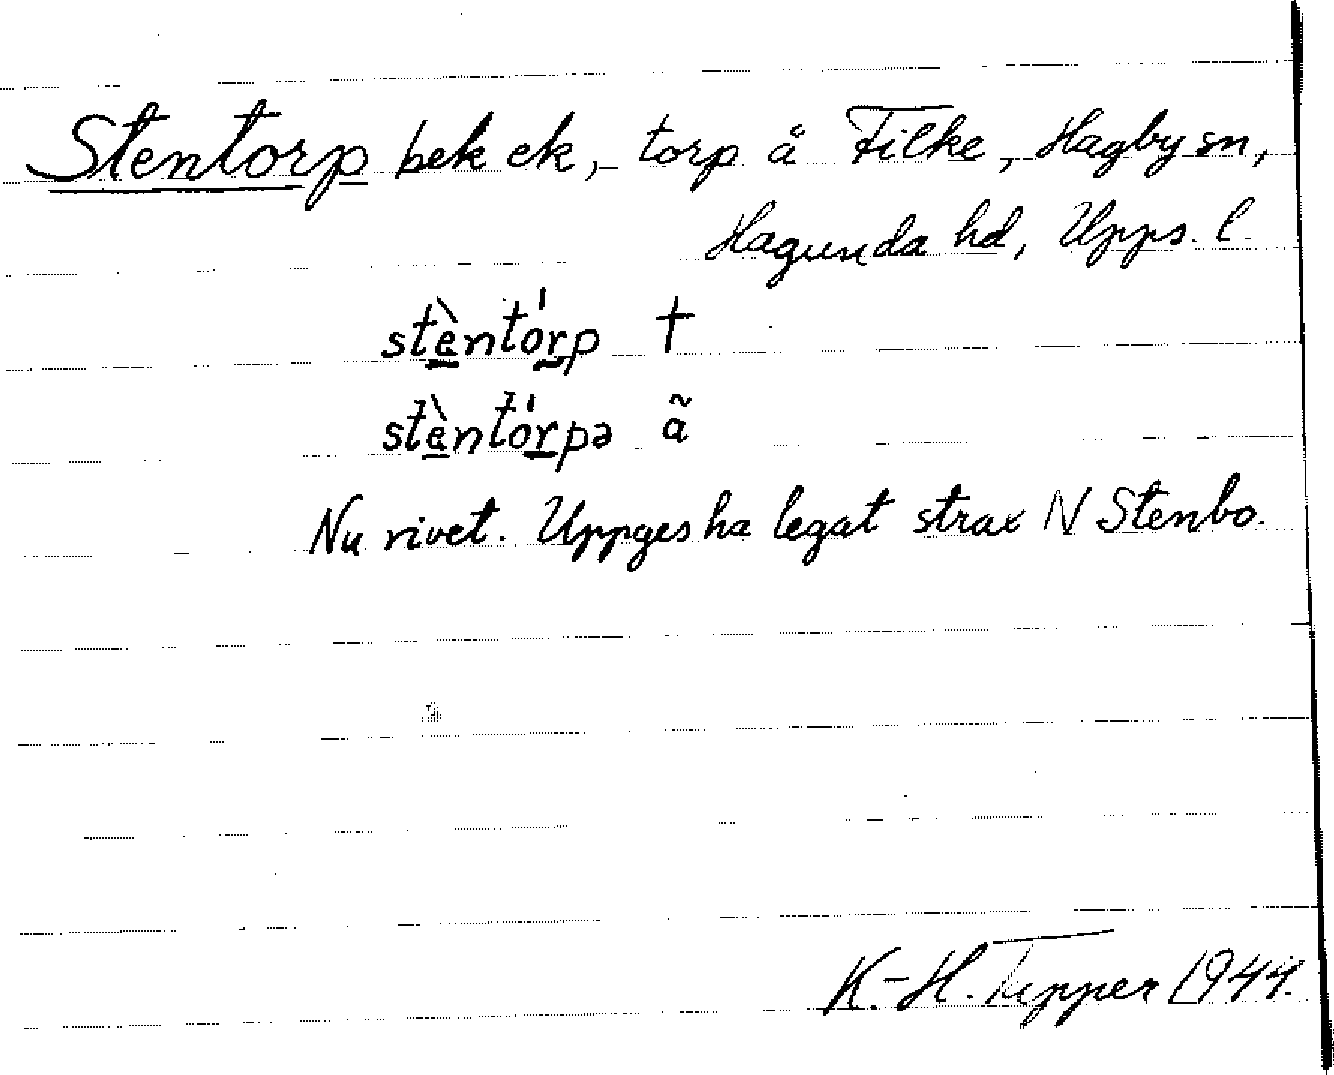 Stentorp bek ek, torp å Filke, Hagby sn,
Hagunda hd, Upps. l.
stèntórp †
stèntórpə ã
Nu rivet. Uppges ha legat strax N Stenbo.
K.-H. Tepper 1944.